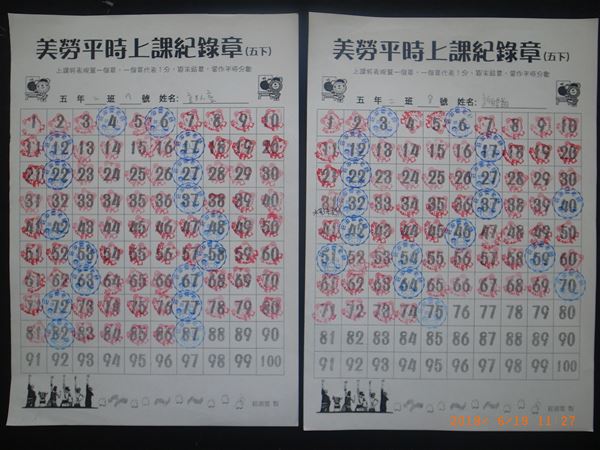 美勞平時上課紀錄章(五下)
五 年 二 班 號 姓名:
1 2 3 4 5 6 7 8 9 10
11 12 13 14 15 16 17 18 19 20
21 22 23 24 25 26 27 28 29 30
31 32 33 34 35 36 37 38 39 40
41 42 43 44 45 46 47 48 49 50
51 52 53 54 55 56 57 58 59 60
61 62 63 64 65 66 67 68 69 70
71 72 73 74 75 76 77 78 79 80
81 82 83 84 85 86 87 88 89 90
91 92 93 94 95 96 97 98 99 100
製
美勞平時上課紀錄章(五下)
五 年 二 班 8 號 姓名:
1 2 3 4 5 6 7 8 9 10
11 12 13 14 15 16 17 18 19 20
21 22 23 24 25 26 27 28 29 30
31 32 33 34 35 36 37 38 39 40
41 42 43 44 45 46 47 48 49 50
51 52 53 54 55 56 57 58 59 60
61 62 63 64 65 66 67 68 69 70
71 72 73 74 75 76 77 78 79 80
81 82 83 84 85 86 87 88 89 90
91 92 93 94 95 96 97 98 99 100
製
6/19 11:27